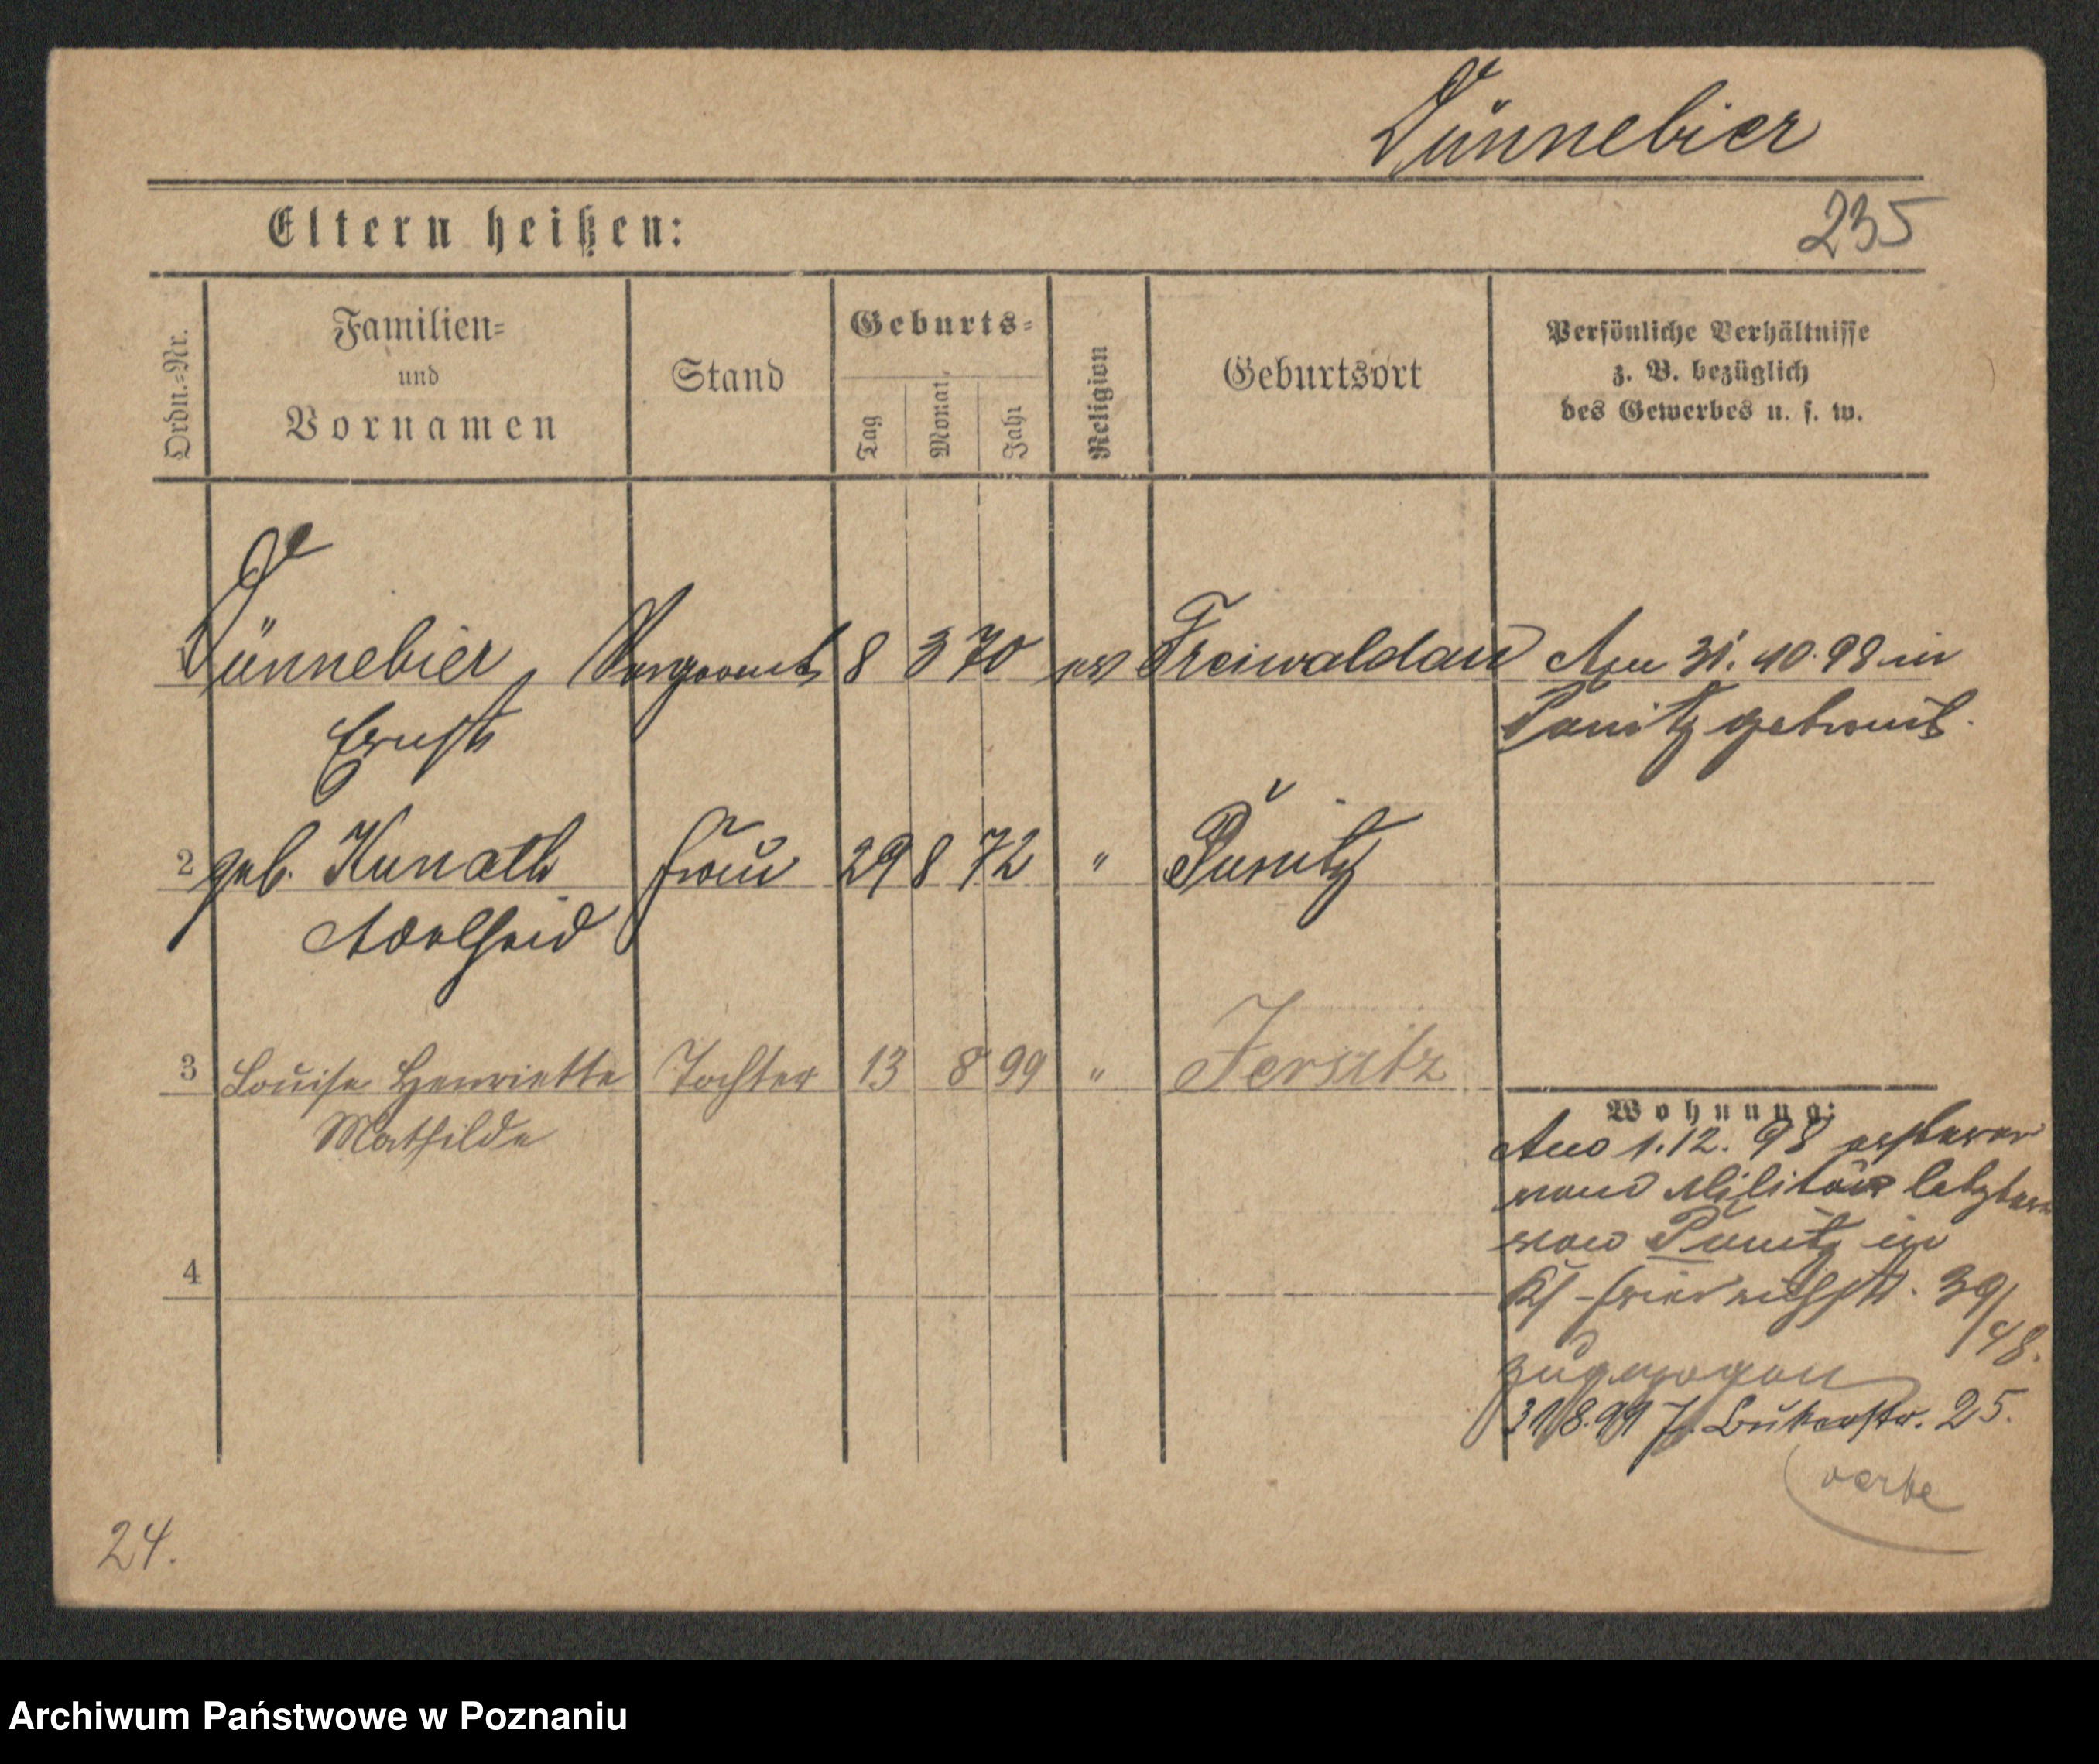 Dünnebier
Eltern heißen:
235
Ordn.-Nr.
Familien-
und
Vornamen
Stand
Geburts-
Tag
Monat
Jahr
Religion
Geburtsort
Persönliche Verhältnisse
z. B. bezüglich
des Gewerbes u. s. w.
Dünnebier, Sergeant 8 3 70 ev Freiwaldau Am 31. 10. 98 in
Ernst
Punitz getraut.
2 geb. Kunath Frau 29 8 72 " Punitz
Adelheid
3 Louise Henriette Tochter 13 8 99 " Jersitz
Mathilde
Wohnung:
Am 1.12. 98 ersterer
vom Militär letztere
von Punitz in
friedrichstr. 39/48.
4
zugezogen
31/8.99 J. Bukerstr. 25.
24.